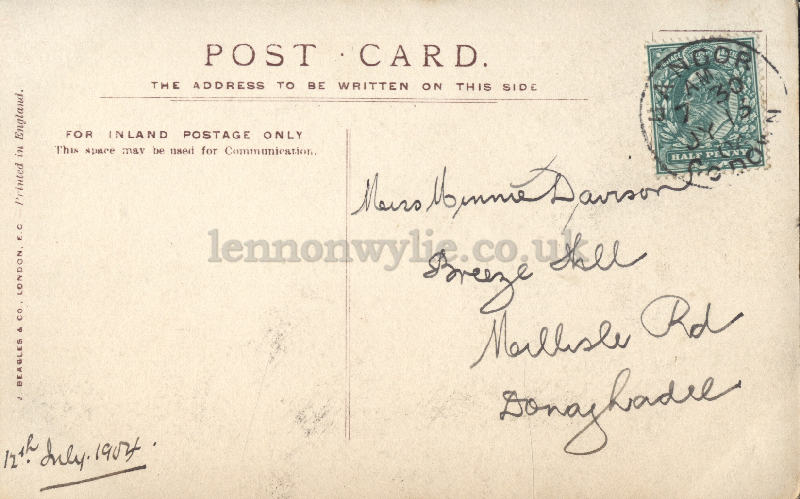 POST CARD.
THE ADDRESS TO BE WRITTEN ON THIS SIDE
FOR INLAND POSTAGE ONLY
This space may be used for Communication.
J. BEAGLES & CO., LONDON, E.C. — Printed in England.
BANGOR
AM
7 30
JY 13
CO. DOWN
HALF PENNY
Miss Minnie Davison
Breeze Hill
Millisle Rd
Donaghadee
12th July. 1904.
lennonwylie.co.uk